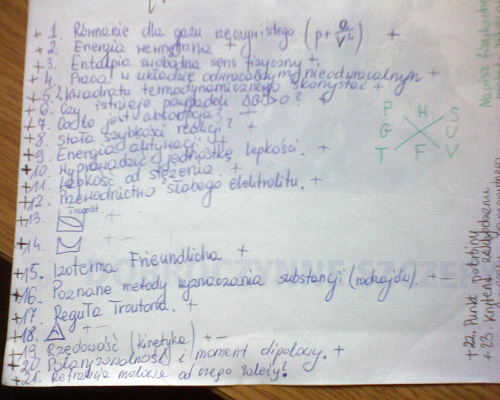 + 1. Równanie dla gazu rzeczywistego (p+ a/V²) +
+ 2. Energia wewnętrzna +
+ 3. Entalpia swobodna sens fizyczny +
+ 4. Praca w układzie odwracalnym, nieodwracalnym +
+ 5. Z kwadratu termodynamicznego skorzystać +
+ 6. Czy istnieje przypadek ΔG>0? +
+ 7. Co to jest absorbcja? +
+ 8. Stała szybkości reakcji? +
+ 9. Energia aktywacji +
+ 10. Wyprowadzić jednostkę lepkości. +
+ 11. Lepkość od stężenia +
+ 12. Przewodnictwo słabego elektrolitu. +
+ 13. + -
+ 14. + -
+ 15. Izoterma Freundlicha +
+ 16. Poznane metody wyznaczania substancji (rodzajów). + -
+ 17. Reguła Troutona. +
+ 18. + -
+ 19. Rzędowość (kinetyka) + -
+ 20. Polaryzowalność i moment dipolowy. +
+ 21. Refrakcja molowa od czego zależy?
P H S
G U
T F V
+ 22. Punkt potrójny
+ 23